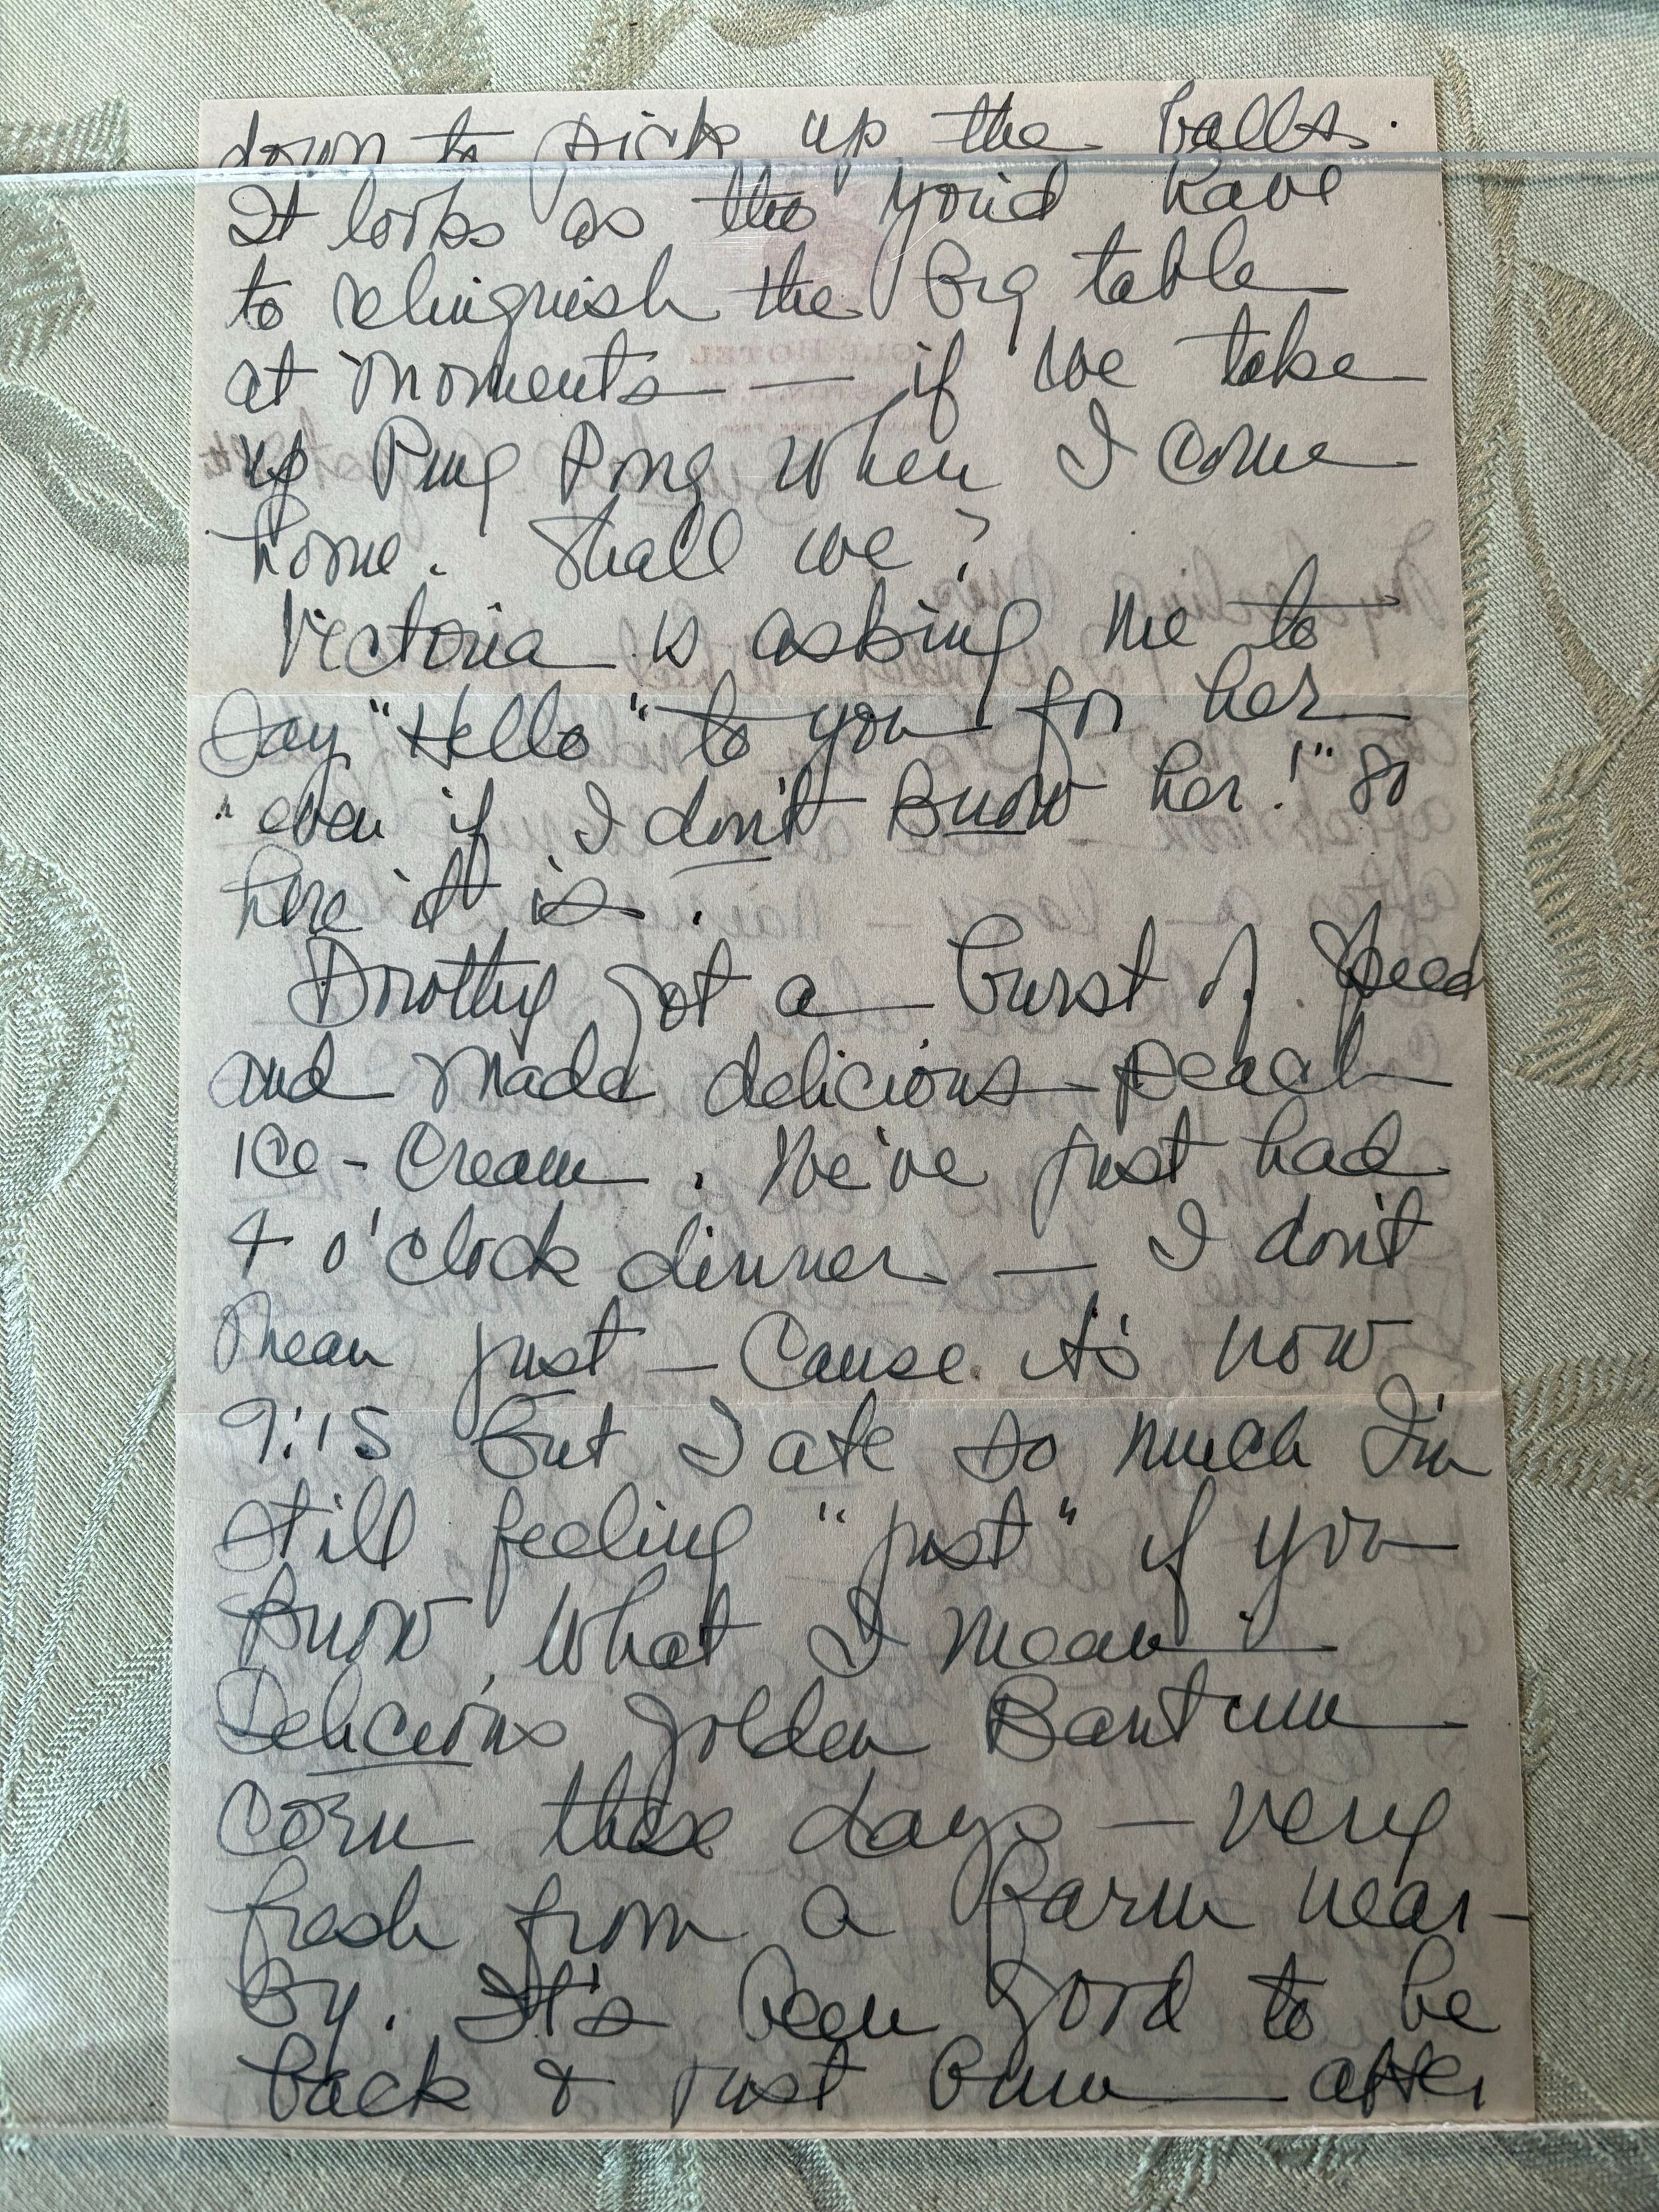 down to pick up the balls.
It looks as tho you'd have
to relinquish the big table
at moments — if we take
up Ping Pong when I come
home. Shall we?
Victoria is asking me to
say "Hello" to you for her
"even if I don't know her!" So
here it is.
Dorothy got a burst of speed
and made delicious peach
ice-cream. We've just had
4 o'clock dinner — I don't
mean just — cause it's now
9:15 but I ate so much I'm
still feeling "just" if you
know what I mean.
Delicious golden Bantum
corn these days — very
fresh from a farm near-
by. It's been good to be
back & just bum after
HOTEL